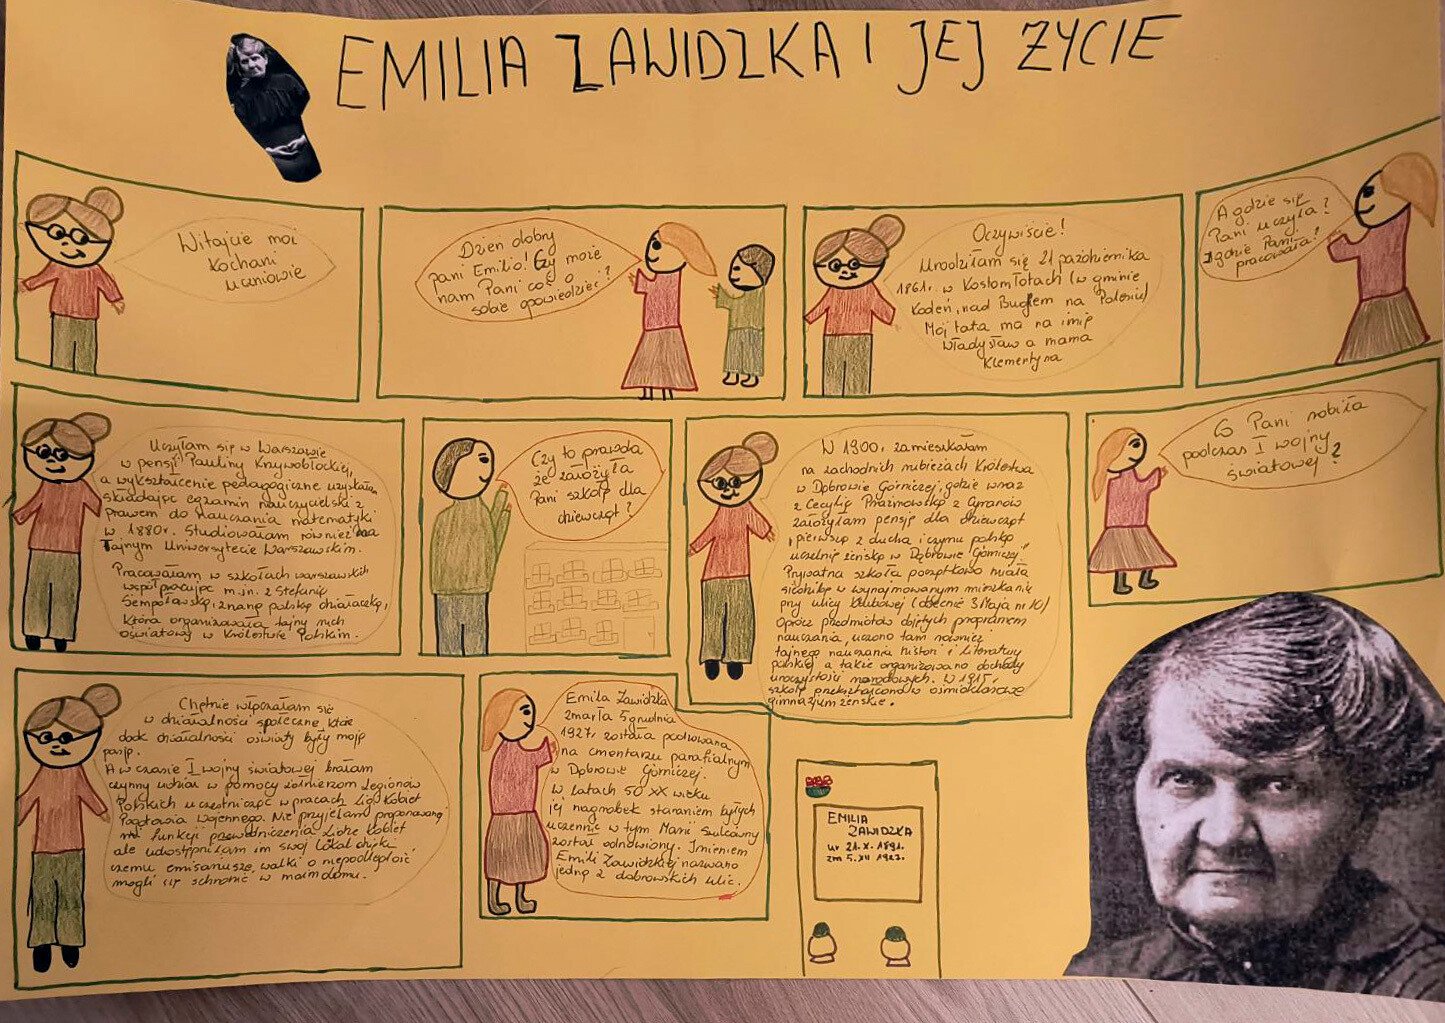 EMILIA ZAWIDZKA I JEJ ŻYCIE
Witajcie moi
Kochani
uczniowie
Dzień dobry
pani Emilio! Czy może
nam Pani coś o
sobie opowiedzieć?
Oczywiście!
Urodziłam się 21 października
1861r. w Kostomłotach (w gminie
Kodeń, nad Bugiem na Polesiu)
Mój tata ma na imię
Władysław a mama
Klementyna
A gdzie się
Pani uczyła?
I gdzie Pani
pracowała?
Uczyłam się w Warszawie
w pensji Pauliny Krzywobłockiej,
a wykształcenie pedagogiczne uzyskałam
składając egzamin nauczycielski z
prawem do nauczania matematyki
w 1880r. Studiowałam również na
Tajnym Uniwersytecie Warszawskim.
Pracowałam w szkołach warszawskich
współpracując m.in. z Stefanią
Sempołowską, znaną polską działaczką,
która organizowała tajny ruch
oświatowy w Królestwie Polskim.
Czy to prawda
że założyła
Pani szkołę dla
dziewcząt?
W 1900r. zamieszkałam
na zachodnich rubieżach Królestwa
w Dąbrowie Górniczej, gdzie wraz
z Cecylią Prażnowską z Gyranów
założyłam pensję dla dziewcząt
„pierwszą z ducha i czynu polską
uczelnię żeńską w Dąbrowie Górniczej".
Prywatna szkoła początkowo miała
siedzibę w wynajmowanym mieszkanie
przy ulicy Klubowej (obecnie 3 Maja nr 10)
Oprócz przedmiotów objętych programem
nauczania, uczono tam również
tajnego nauczania histori i literatury
polskiej a także organizowano obchody
uroczystości narodowych. W 1915r.
szkołę przekształcono w ośmioklasowe
gimnazjum żeńskie.
Co Pani robiła
podczas I wojny
światowej?
Chętnie włączałam się
w działalności społeczne, które
obok działalności oświaty były moją
pasją.
A w czasie I wojny światowej brałam
czynny udział w pomocy żołnierzom Legionów
Polskich uczestnicząc w pracach Ligi Kobiet
Pogotowia Wojennego. Nie przyjęłam proponowanej
mi funkcji przewodniczenia Lidze Kobiet
ale udostępniłam im swój lokal dzięki
czemu emisariusze walki o niepodległość
mogli się schronić w moim domu.
Emilia Zawidzka
zmarła 5 grudnia
1927r. została pochowana
na cmentarzu parafialnym
w Dąbrowie Górniczej.
W latach 50 XX wieku
jej nagrobek staraniem byłych
uczennic w tym Marii
został odnowiony. Imieniem
Emilii Zawidzkiej nazwano
jedną z dąbrowskich ulic.
EMILIA
ZAWIDZKA
ur 21. X. 1891.
zm 5. XII 1927.